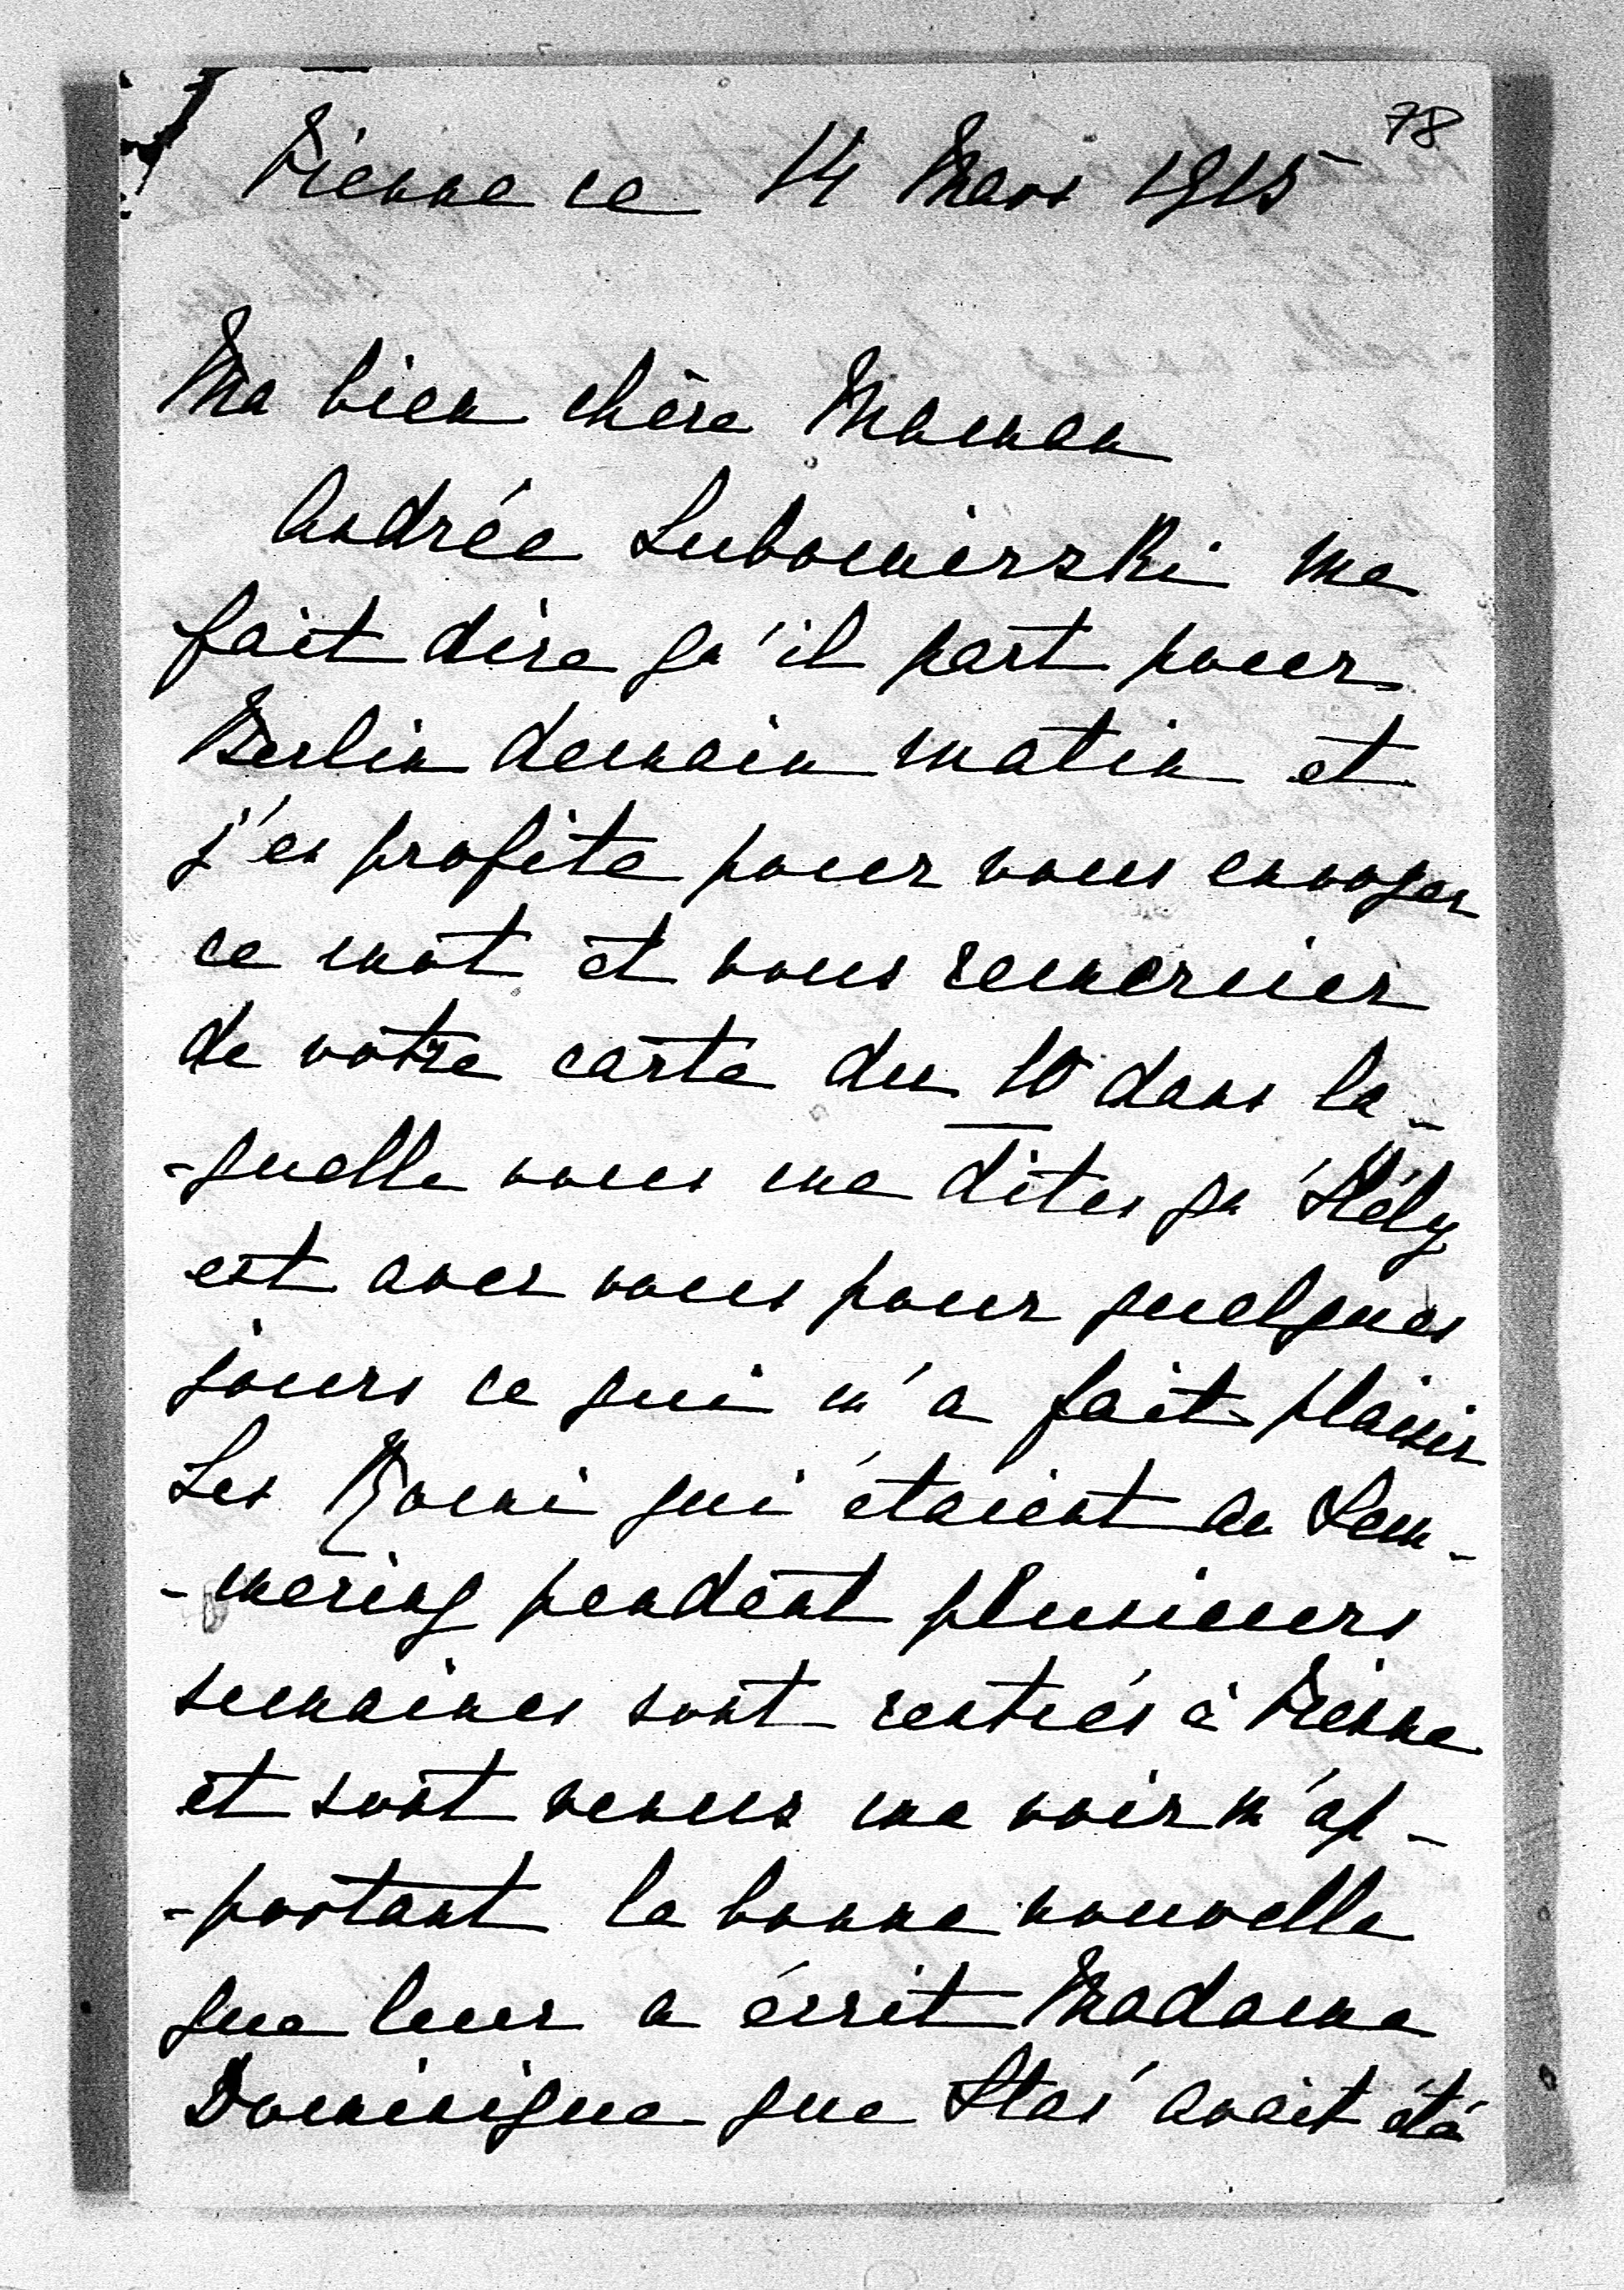 78
Vienne ce 14 Mars 1915
Ma bien chère Maman
Andrée Lubomirski me
fait dire qu'il part pour
Berlin demain matin et
j'en profite pour vous envoyer
ce mot et vous remercier
de votre carte du 10 dans la-
-quelle vous me dites qu'
est avec vous pour quelques
jours ce qui m'a fait plaisir
Les qui étaient au Sem-
-mering pendant plusieurs
semaines sont rentrés à Vienne
et sont venus me voir m'ap-
-portant la bonne nouvelle
que leur a écrit Madame
Dominique que Staś avait été